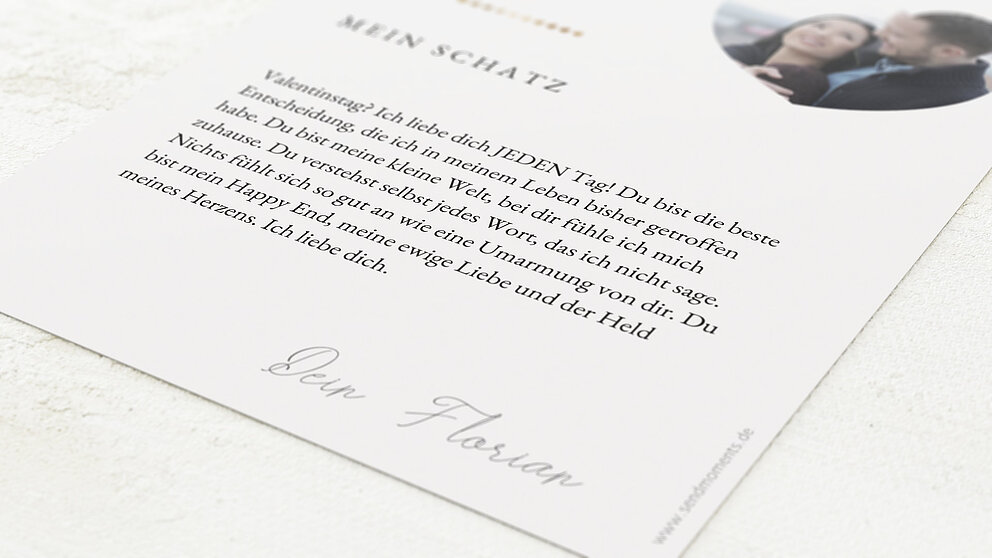 MEIN SCHATZ
Valentinstag? Ich liebe dich JEDEN Tag! Du bist die beste
Entscheidung, die ich in meinem Leben bisher getroffen
habe. Du bist meine kleine Welt, bei dir fühle ich mich
zuhause. Du verstehst selbst jedes Wort, das ich nicht sage.
Nichts fühlt sich so gut an wie eine Umarmung von dir. Du
bist mein Happy End, meine ewige Liebe und der Held
meines Herzens. Ich liebe dich.
Dein Florian
www.sendmoments.de